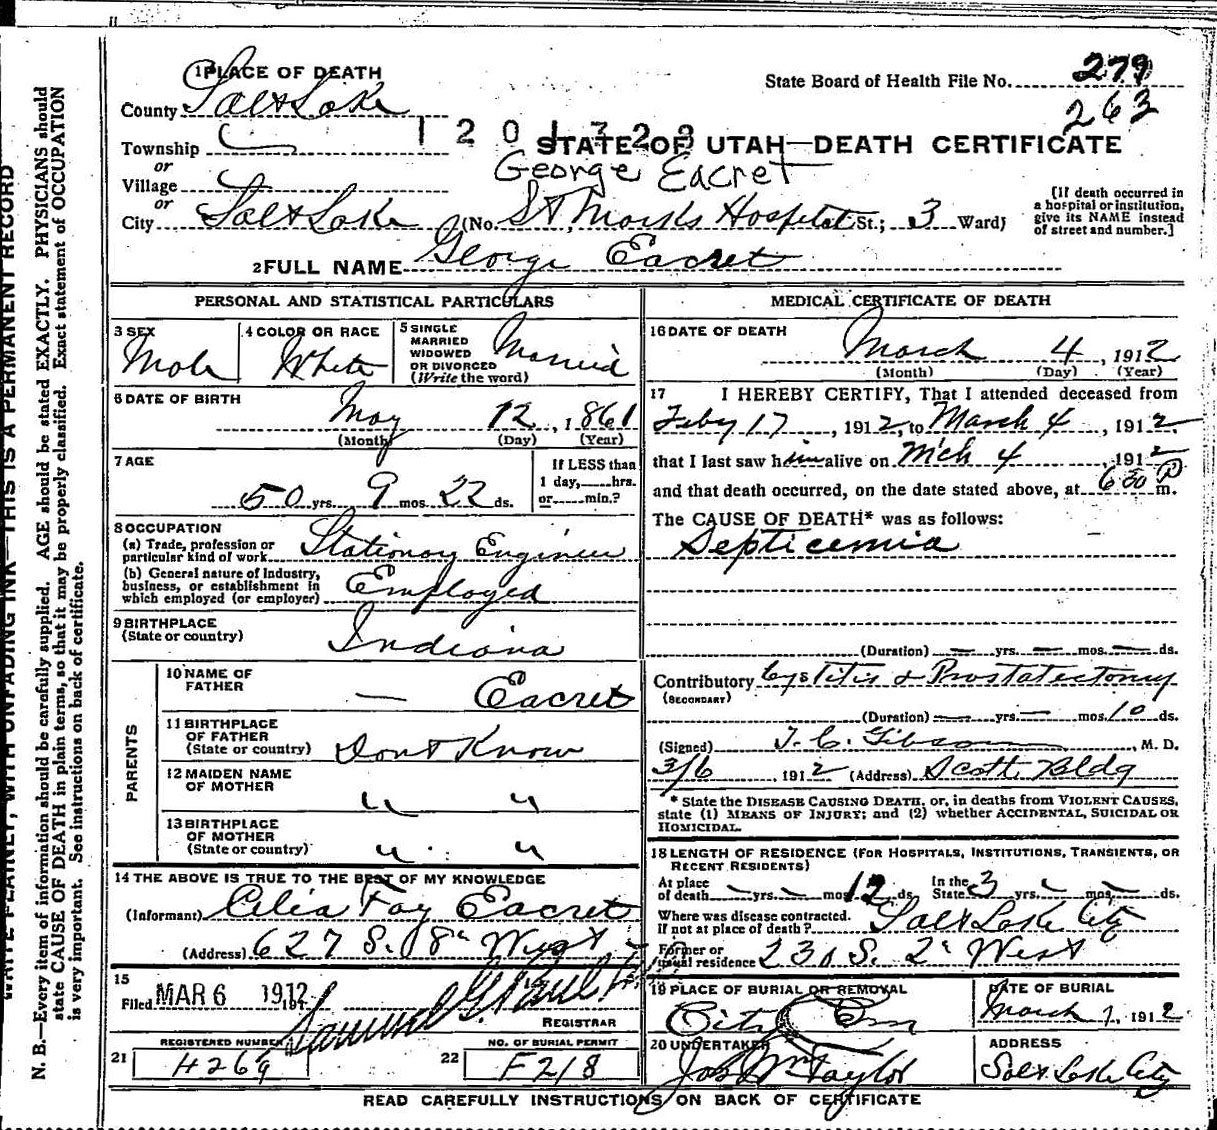 1 PLACE OF DEATH
State Board of Health File No. 279
263
County Salt Lake
1201329
Township
STATE OF UTAH—DEATH CERTIFICATE
or
George Eacret
Village
or
City Salt Lake (No. St, Marks Hospital St.; 3 Ward)
[If death occurred in a hospital or institution, give its NAME instead of street and number.]
2 FULL NAME George Eacret
PERSONAL AND STATISTICAL PARTICULARS
3 SEX Male
4 COLOR OR RACE White
5 SINGLE MARRIED WIDOWED OR DIVORCED (Write the word) Married
6 DATE OF BIRTH May 12, 1861
(Month) (Day) (Year)
7 AGE 50 yrs. 9 mos. 22 ds.
If LESS than 1 day, hrs. or min.?
8 OCCUPATION
(a) Trade, profession or particular kind of work Stationary Engineer
(b) General nature of industry, business, or establishment in which employed (or employer) Employed
9 BIRTHPLACE (State or country) Indiana
PARENTS
10 NAME OF FATHER — Eacret
11 BIRTHPLACE OF FATHER (State or country) Dont Know
12 MAIDEN NAME OF MOTHER " "
13 BIRTHPLACE OF MOTHER (State or country) " "
14 THE ABOVE IS TRUE TO THE BEST OF MY KNOWLEDGE
(Informant) Celia Fay Eacret
(Address) 627 S. 8" West
15
Filed MAR 6 1912 191
REGISTRAR
REGISTERED NUMBER
21 4269
NO. OF BURIAL PERMIT
22 F218
MEDICAL CERTIFICATE OF DEATH
16 DATE OF DEATH March 4, 1912
(Month) (Day) (Year)
17 I HEREBY CERTIFY, That I attended deceased from
Feby 17, 1912, to March 4, 1912.
that I last saw him alive on Mch 4, 1912
and that death occurred, on the date stated above, at 6 30 P m.
The CAUSE OF DEATH* was as follows:
Septicemia
(Duration) — yrs. — mos. — ds.
Contributory (SECONDARY) Cystitis & Prostatectomy
(Duration) — yrs. — mos. 10 ds.
(Signed) T. C. Gibson, M. D.
3/6, 1912 (Address) Scott Bldg
* State the DISEASE CAUSING DEATH, or, in deaths from VIOLENT CAUSES, state (1) MEANS OF INJURY; and (2) whether ACCIDENTAL, SUICIDAL OR HOMICIDAL.
18 LENGTH OF RESIDENCE (FOR HOSPITALS, INSTITUTIONS, TRANSIENTS, OR RECENT RESIDENTS)
At place of death — yrs. — mos. 12 ds. In the State 3 yrs. — mos. — ds.
Where was disease contracted. If not at place of death? Salt Lake City
Former or usual residence 230 S. 2" West
19 PLACE OF BURIAL OR REMOVAL City Cem
DATE OF BURIAL March 7, 1912
20 UNDERTAKER Jos Wm Taylor
ADDRESS Salt Lake City
READ CAREFULLY INSTRUCTIONS ON BACK OF CERTIFICATE
WRITE PLAINLY, WITH UNFADING INK—THIS IS A PERMANENT RECORD
N. B.—Every item of information should be carefully supplied. AGE should be stated EXACTLY. PHYSICIANS should
state CAUSE OF DEATH in plain terms, so that it may be properly classified. Exact statement of OCCUPATION
is very important. See instructions on back of certificate.